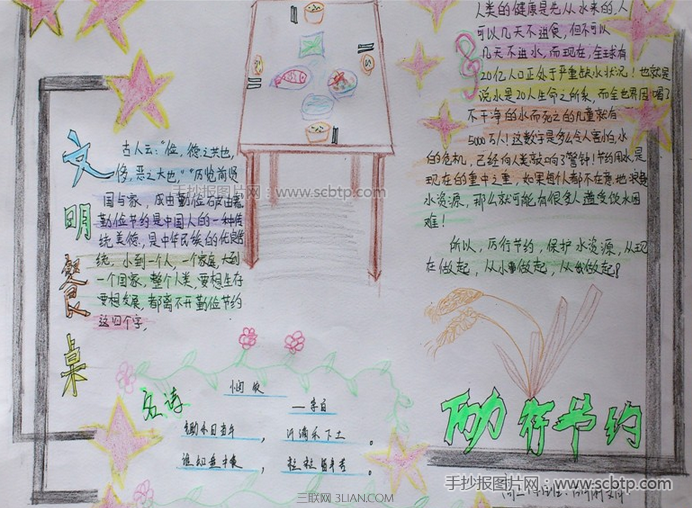 文明餐桌
古人云："俭,德之共也,
侈,恶之大也。""历览前贤
国与家,成由勤俭破由奢
勤俭节约是中国人的一种传
统美德,是中华民族的优良
传统。小到一个人,一个家庭,大到
一个国家,整个人类,要想生存
要想发展,都离不开勤俭节约
这四个字。
人类的健康是先从水来的,人
可以几天不进食,但不可以
几天不进水,而现在,全球有
20亿人口正处于严重缺水状况！也就是
说水是20人生命之所系,而全世界因喝了
不干净的水而死之的儿童就有
5000万人！这数字是多么令人害怕,水
的危机,已经向人类敲响了警钟！节约用水,是
现在的重中之重,如果每个人都不在意地浪费
水资源,那么就可能有很多人遭受饮水困
难！
所以,厉行节约,保护水资源,从现
在做起,从小事做起,从我做起！
手抄报图片网：www.scbtp.com
古诗
悯农
—李白
锄禾日当午，汗滴禾下土。
谁知盘中餐，粒粒皆辛苦。
厉行节约
手抄报图片网：www.scbtp.com
三联网 3LIAN.COM